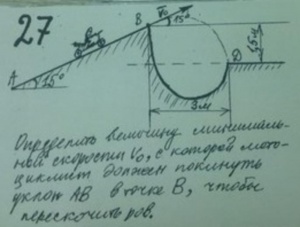 27
B
V₀
15°
1,5м
A
15°
D
3м
Определить величину минималь-
ной скорости V₀, с которой мото-
циклист должен покинуть
уклон AB в точке B, чтобы
перескочить ров.